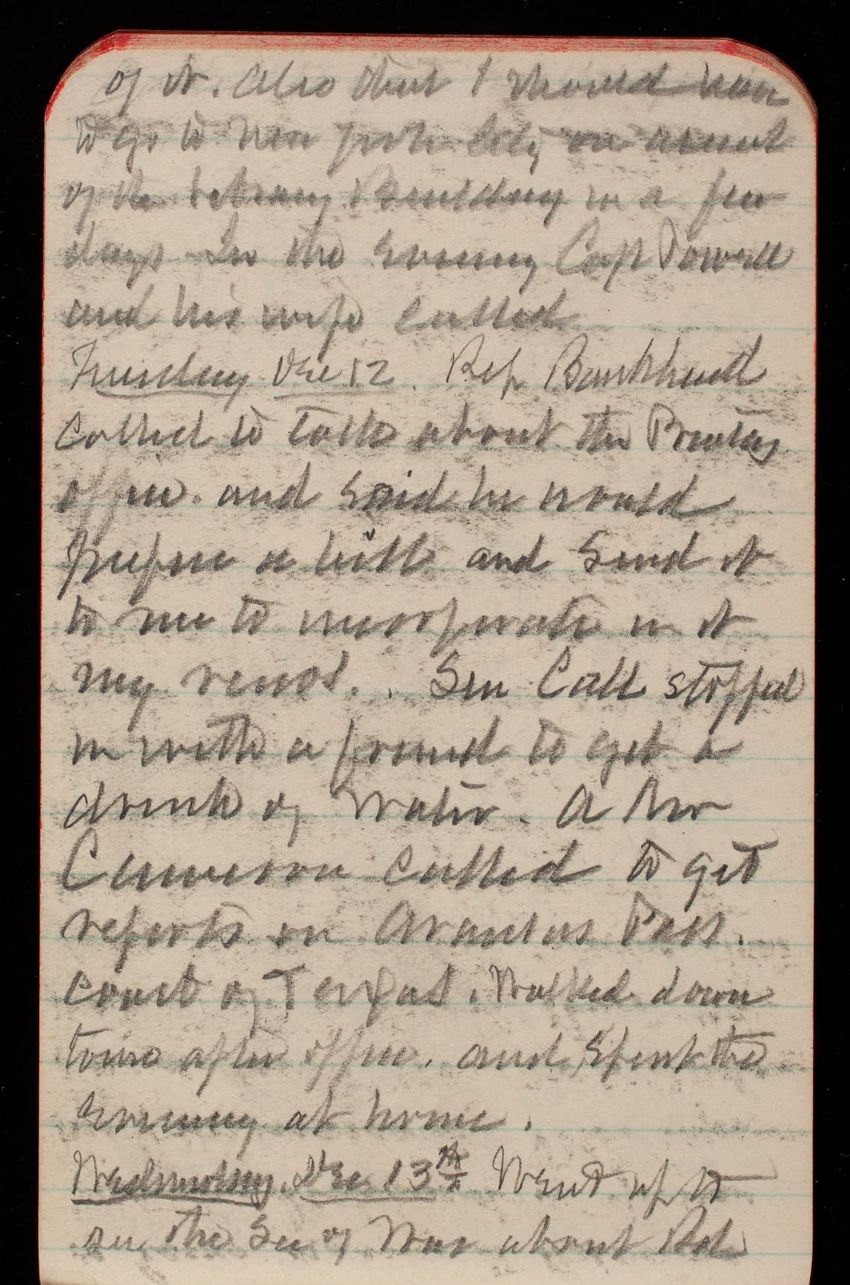 of it. Also that I should have
to go to New York City on account
of the Library Building in a few
days. In the evening Capt Powell
and his wife called
Tuesday Dec 12. Rep Bankhead
called to talk about the Printing
office. and said he would
prepare a bill and send it
to me to incorporate in it
my views. . Sen Call stopped
in with a friend to get a
drink of water. A Mr
Cameron called to get
reports on Aransas Pass.
coast of Texas. Walked down
town after office. and spent the
evening at home.
Wednesday. Dec 13th Went up to
see the Sec of War about Rob